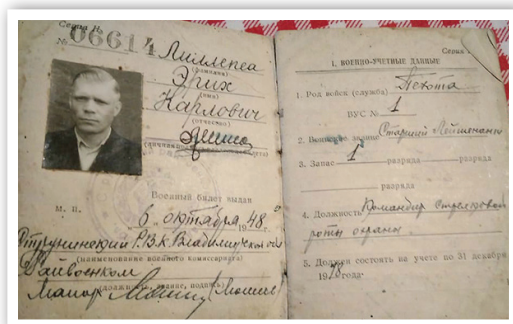 Серия Н
№ 06614
Лиллепеа
(фамилия)
Эрих
(имя)
Карлович
(отчество)
Военный билет выдан
М. П.
6 октября 1948 г.
Струнинский Р.В.К. Владимирской обл
(наименование военного комиссариата)
Райвоенком
Майор
(должность, звание, подпись)
Серия
I. ВОЕННО-УЧЕТНЫЕ ДАННЫЕ
1. Род войск (служба) Пехота
ВУС № 1
2. Воинское звание Старший Лейтенант
3. Запас 1 разряда разряда
разряда
4. Должность Командир Стрелковой
роты охраны
5. Должен состоять на учете по 31 декабря
19 года.